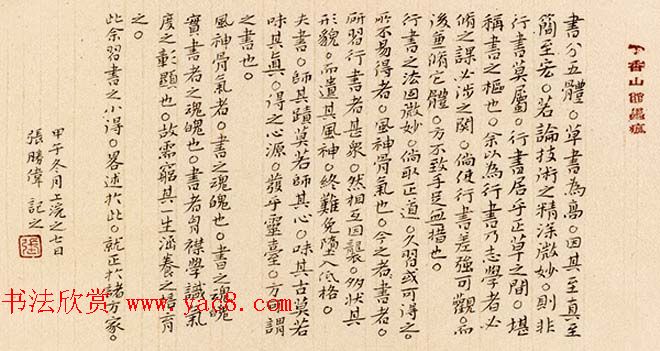 香山館
書分五體。草書為高。因其至真至
簡至宏。若論技術之精深微妙。則非
行書莫屬。行書居乎正草之間。堪
稱書之樞也。余以為行書乃志學者必
脩之課必涉之関。倘使行書差強可觀。而
後兼脩它體。方不致手足無措也。
行書之法因微妙。倘取正道。久習或可得之。
所不易得者。風神骨氣也。今之書者。
所習行書者甚衆。然相互因襲。多狀其
形貌。而遺其風神。終難免墮入俗格。
夫書。師其蹟莫若師其心。味其古莫若
味其真。得之心源。發乎靈臺。方可謂
之書也。
風神骨氣者。書之魂魄也。書之魂魄
實書者之魂魄也。書者胷襟學識氣
度之彰顯也。故需窮其一生涵養之培育
之。
此余習書之小得。畧述於此。就正於諸方家。
甲子冬月上浣之七日
張勝偉 記之
張
书法欣赏 www.yac8.com